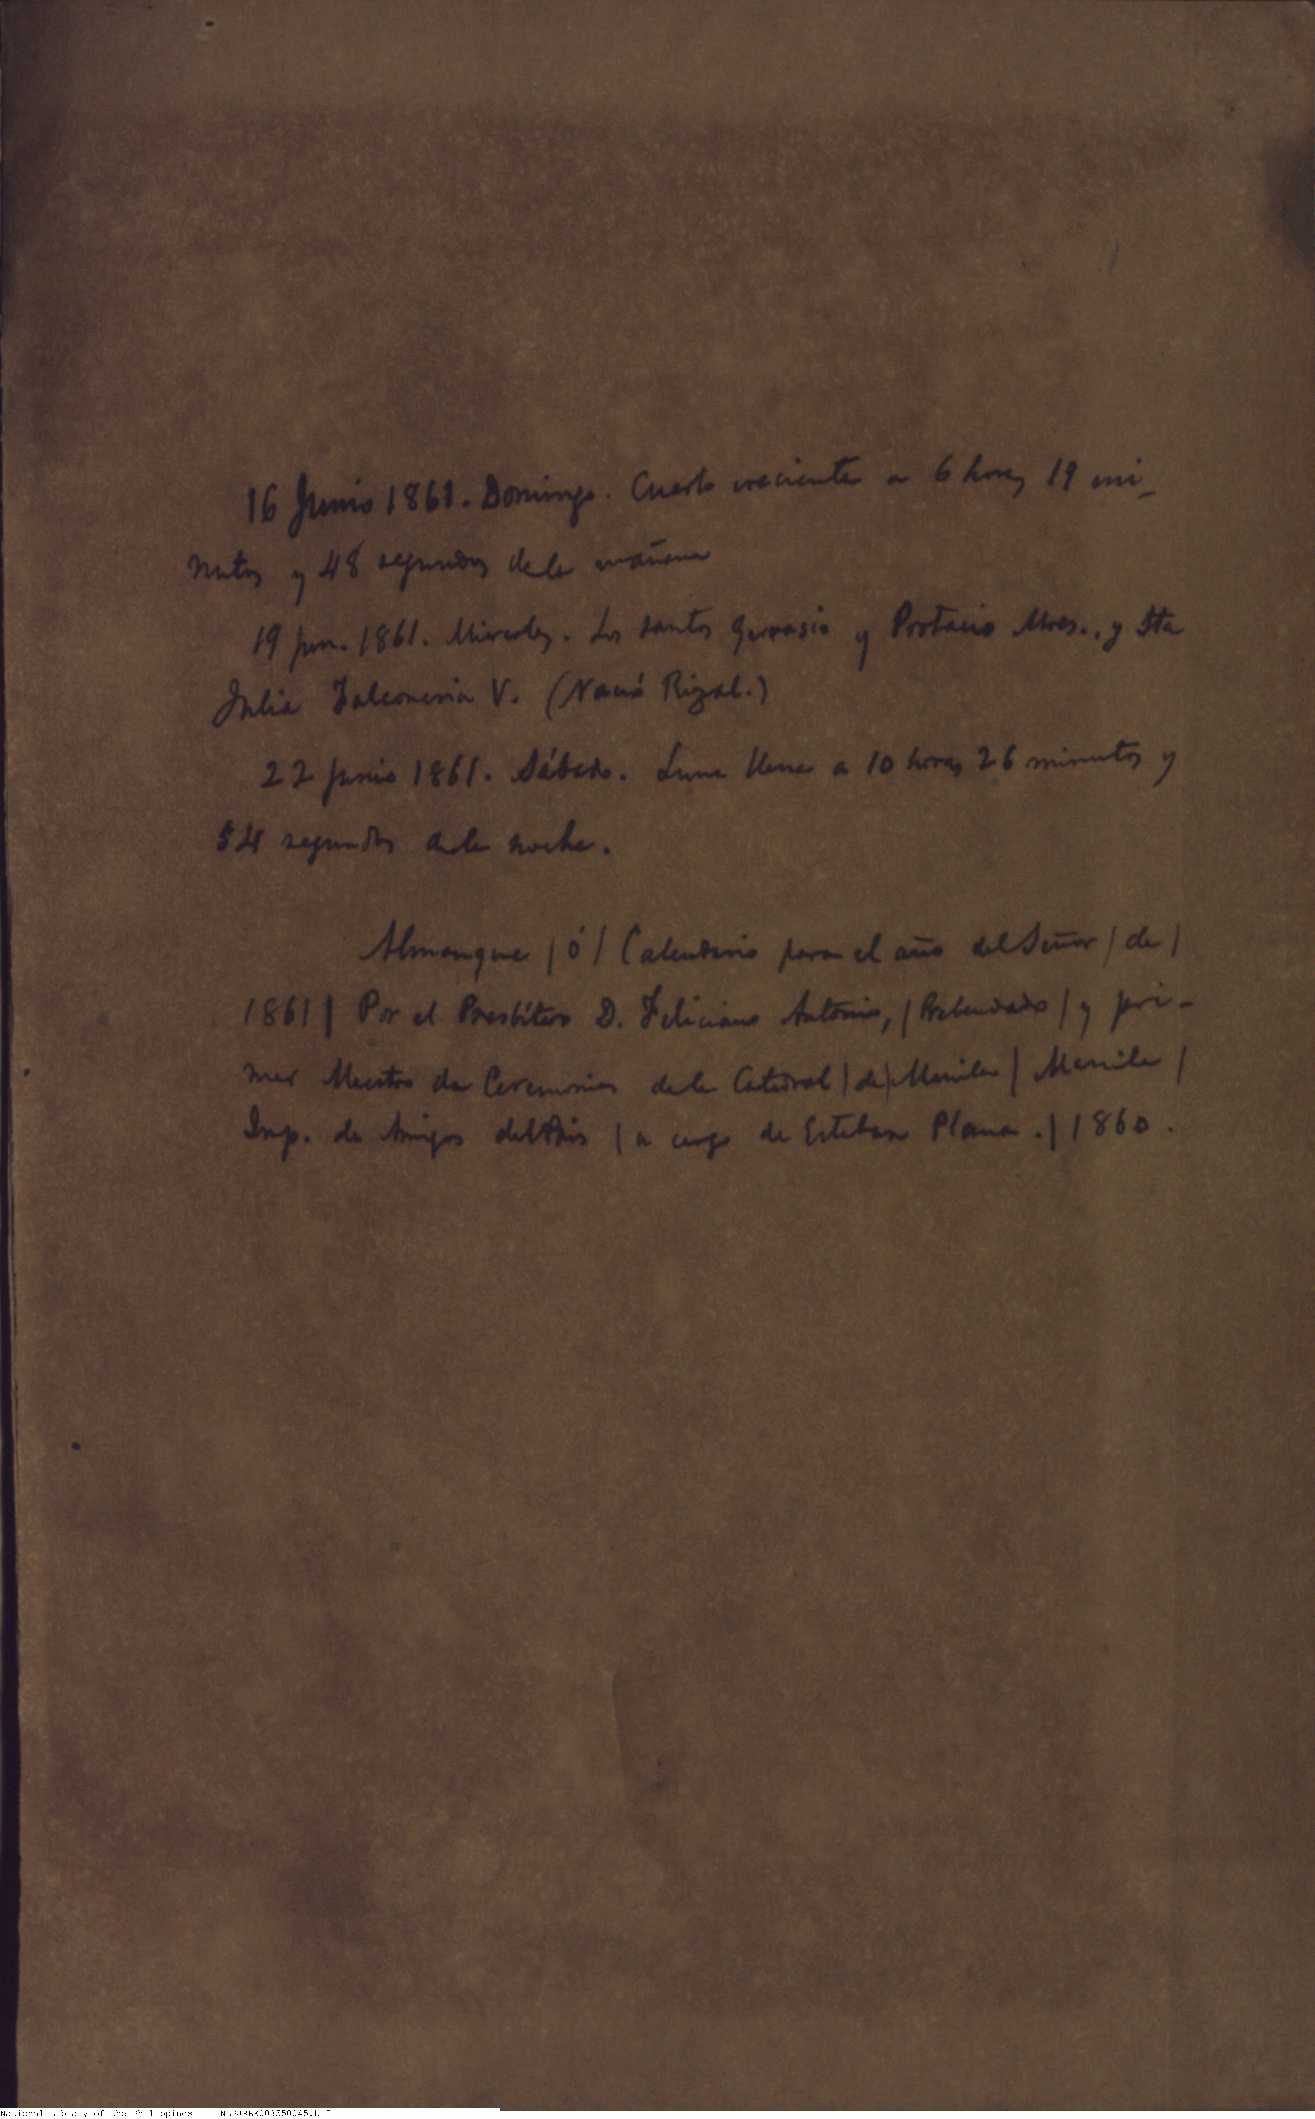 16 Junio 1861. Domingo. Cuarto creciente a 6 horas 19 mi-
nutos y 48 segundos de la mañana
19 jun. 1861. Miercoles. Los santos Gervasio y Protacio Mres., y Sta
Julia Falconeria V. (Nació Rizal.)
22 junio 1861. Sábado. Luna llena a 10 horas 26 minutos y
54 segundos de la noche.
Almanaque | ó | Calendario para el año del Señor | de |
1861 | Por el Presbítero D. Feliciano Antonio, | Prebendado | y pri-
mer Maestro de Ceremonias de la Catedral | de | Manila | Manila |
Imp. de Amigos del Pais | a cargo de Esteban Plana. | 1860.
National Library of the Philippines